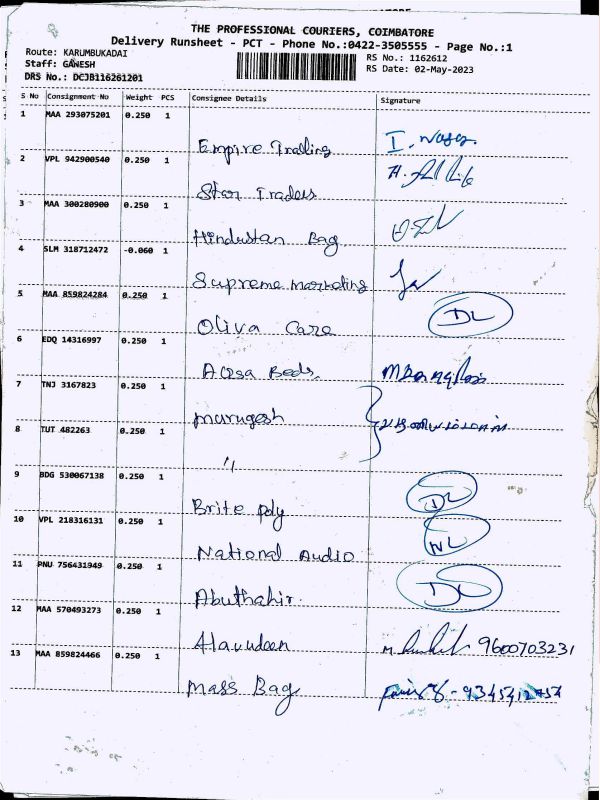 THE PROFESSIONAL COURIERS, COIMBATORE
Delivery Runsheet - PCT - Phone No.:0422-3505555 - Page No.:1
Route: KARUMBUKADAI
RS No.: 1162612
Staff: GANESH
RS Date: 02-May-2023
DRS No.: DCJB116261201
S No Consignment No Weight PCS Consignee Details Signature
1 MAA 293075201 0.250 1
Empire Trading
2 VPL 942900540 0.250 1
Star Traders
3 MAA 300280900 0.250 1
Hindustan Bag
4 SLM 318712472 -0.060 1
Supreme marketing
5 MAA 859824284 0.250 1
Oliva Care DL
6 EDQ 14316997 0.250 1
Beds.
7 TNJ 3167823 0.250 1
murugesh
8 TUT 482263 0.250 1
"
9 BDG 530067138 0.250 1
Brite poly DL
10 VPL 218316131 0.250 1
National Audio NL
11 PNU 756431949 0.250 1
Abuthahir. DL
12 MAA 570493273 0.250 1
Alavudeen 9600703231
13 MAA 859824466 0.250 1
Mass Bag